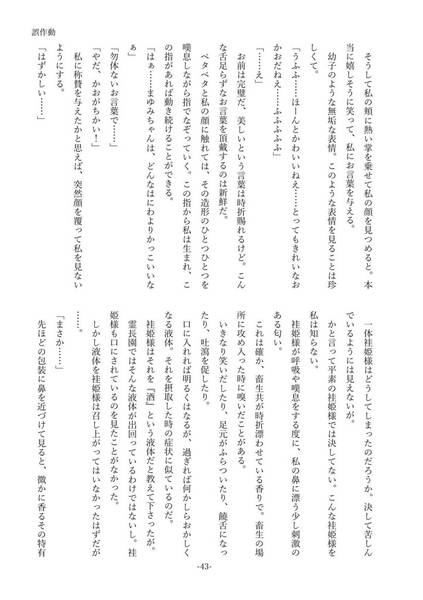 誤作動
　そうして私の頬に熱い掌を乗せて私の顔を見つめると。本
当に嬉しそうに笑って、私にお言葉を与える。
　幼子のような無垢な表情。このような表情を見ることは珍
しくて。
「うふふ……ほーんとかわいいねぇ……とってもきれいなお
かおだねぇ……ふふふふふ」
「……え」
　お前は完璧だ、美しいという言葉は時折賜れるけど。こん
な舌足らずなお言葉を頂戴するのは新鮮だ。
　ペタペタと私の顔に触れては、その造形のひとつひとつを
嘆息しながら指でなぞっていく。この指から私は生まれ、こ
の指があれば動き続けることができる。
「はぁ……まゆみちゃんは、どんなはにわよりかっこいいな
ぁ」
「勿体ないお言葉で……」
「やだ、かおがちかい！」
　私に称賛を与えたかと思えば、突然顔を覆って私を見ない
ようにする。
「はずかしい……」
　一体袿姫様はどうしてしまったのだろうか。決して苦しん
でいるようには見えないが。
　かと言って平素の袿姫様では決してない。こんな袿姫様を
私は知らない。
　袿姫様が呼吸や嘆息をする度に、私の鼻に漂う少し刺激の
ある匂い。
　これは確か、畜生共が時折漂わせている香りで。畜生の場
所に攻め入った時に嗅いだことがある。
　いきなり笑いだしたり、足元がふらついたり、饒舌になっ
たり、吐瀉を促したり。
　口に入れれば明るくはなるが、過ぎれば何かしらおかしく
なる液体。それを摂取した時の症状に似ているのだ。
　袿姫様はそれを『酒』という液体だと教えて下さったが。
　霊長園ではそんな液体が出回っているわけではないし。袿
姫様も口にされているのを見たことがなかった。
　しかし液体を袿姫様は召し上がってはいなかったはずだが
……。
「まさか……」
　先ほどの包装に鼻を近づけて見ると、微かに香るその特有
-43-